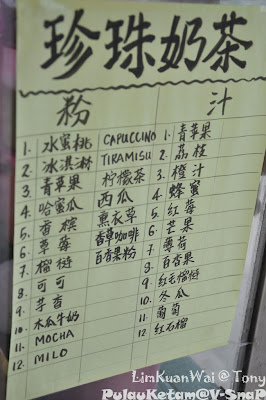 珍珠奶茶
粉 汁
1. 水蜜桃 CAPUCCINO 1. 青苹果
2. 冰淇淋 TIRAMISU 2. 荔枝
3. 青苹果 柠檬茶 3. 橙汁
4. 哈蜜瓜 西瓜 4. 蜂蜜
5. 香槟 薰衣草 5. 红莓
6. 草莓 香草咖啡 6. 芒果
7. 榴梿 百香果粉 7. 薄荷
8. 可可 8. 百香果
9. 芋香 9. 红毛榴梿
10. 木瓜牛奶 10. 冬瓜
11. MOCHA 11. 葡萄
12. MILO 12. 红石榴
LimKuanWai @ Tony
PulauKetam@V-SnaP